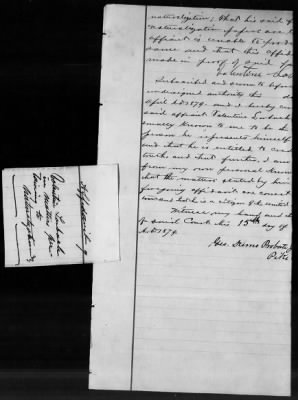 naturalization; that his said
naturalization papers are
affiant is unable to produce
same and that this affid
made in proof of said
Valentine
Subscribed and sworn to before
undersigned authority this
April A.D. 1879. and I hereby
said affiant Valentine
sonally known to me to be the
person he represents himself
and that he is entitled to
truth, and that further, I
from my own personal know
that the matters stated by
foregoing affidavit are correct
and that he is a citizen of the united
Witness my hand and
of said Court this 15th day of
A.D. 1879.
Geo. Sims Probate
Affidavit of
Valentine
in matter per-
taining to
Naturalization